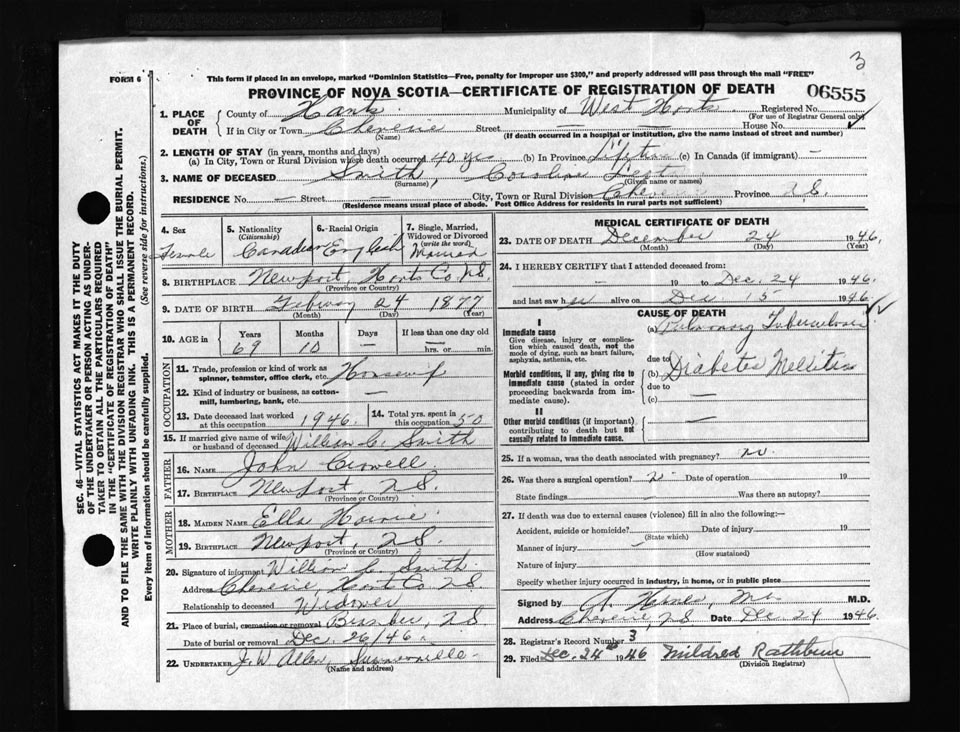 3
FORM 6
This form if placed in an envelope, marked "Dominion Statistics—Free, penalty for improper use $300," and properly addressed will pass through the mail "FREE"
PROVINCE OF NOVA SCOTIA—CERTIFICATE OF REGISTRATION OF DEATH
06555
1. PLACE OF DEATH
County of Hants Municipality of West Hants Registered No.
(For use of Registrar General only)
If in City or Town Cheverie Street — House No. —
(Name) (If death occurred in a hospital or institution, give the name instead of street and number)
2. LENGTH OF STAY (in years, months and days)
(a) In City, Town or Rural Division where death occurred 40 yrs (b) In Province Lifetime (c) In Canada (if immigrant) —
3. NAME OF DECEASED Smith, Caroline
(Surname) (Given name or names)
RESIDENCE No. — Street — City, Town or Rural Division Cheverie Province N.S.
(Residence means usual place of abode. Post Office Address for residents in rural parts not sufficient)
4. Sex
Female
5. Nationality (Citizenship)
Canadian
6. Racial Origin
English
7. Single, Married, Widowed or Divorced (write the word)
Married
8. BIRTHPLACE Newport Hants Co. N.S
(Province or Country)
9. DATE OF BIRTH 24 1877
(Month) (Day) (Year)
10. AGE in
Years 69
Months 10
Days —
If less than one day old
hrs. or min.
OCCUPATION
11. Trade, profession or kind of work as spinner, teamster, office clerk, etc.
12. Kind of industry or business, as cotton-mill, lumbering, bank, etc. —
13. Date deceased last worked at this occupation 1946.
14. Total yrs. spent in this occupation 50
15. If married give name of wife or husband of deceased William C. Smith
FATHER
16. NAME John
17. BIRTHPLACE Newport, N.S.
(Province or Country)
MOTHER
18. MAIDEN NAME Ella
19. BIRTHPLACE Newport, N.S.
(Province or Country)
20. Signature of informant William C. Smith
Address Cheverie, Hants Co. N.S.
Relationship to deceased Widower
21. Place of burial, cremation or removal N.S
Date of burial or removal Dec. 26/46.
22. UNDERTAKER J. W. Allen Summerville
(Name and address)
MEDICAL CERTIFICATE OF DEATH
23. DATE OF DEATH December 24 1946.
(Month) (Day) (Year)
24. I HEREBY CERTIFY that I attended deceased from:
— 19 to Dec. 24 1946.
and last saw her alive on Dec 15 1946
CAUSE OF DEATH
I
Immediate cause
Give disease, injury or complication which caused death, not the mode of dying, such as heart failure, asphyxia, asthenia, etc.
(a) Pulmonary Tuberculosis
due to
Morbid conditions, if any, giving rise to immediate cause (stated in order proceeding backwards from immediate cause).
(b) Diabetes Mellitus
due to
(c) —
II
Other morbid conditions (if important) contributing to death but not causally related to immediate cause.
—
25. If a woman, was the death associated with pregnancy? no
26. Was there a surgical operation? Date of operation 19
State findings — Was there an autopsy?
27. If death was due to external causes (violence) fill in also the following:—
Accident, suicide or homicide? Date of injury 19
(State which)
Manner of injury —
(How sustained)
Nature of injury
Specify whether injury occurred in industry, in home, or in public place
Signed by M.D.
Address Cheverie, N.S Date Dec. 24 1946.
28. Registrar's Record Number 3
29. Filed Dec. 24th 1946 Mildred Rathbun
(Division Registrar)
SEC. 46—VITAL STATISTICS ACT MAKES IT THE DUTY
OF THE UNDERTAKER OR PERSON ACTING AS UNDER-
TAKER TO OBTAIN ALL THE PARTICULARS REQUIRED
IN THE "CERTIFICATE OF REGISTRATION OF DEATH"
AND TO FILE THE SAME WITH THE DIVISION REGISTRAR WHO SHALL ISSUE THE BURIAL PERMIT.
WRITE PLAINLY WITH UNFADING INK. THIS IS A PERMANENT RECORD.
Every item of information should be carefully supplied. (See reverse side for instructions.)